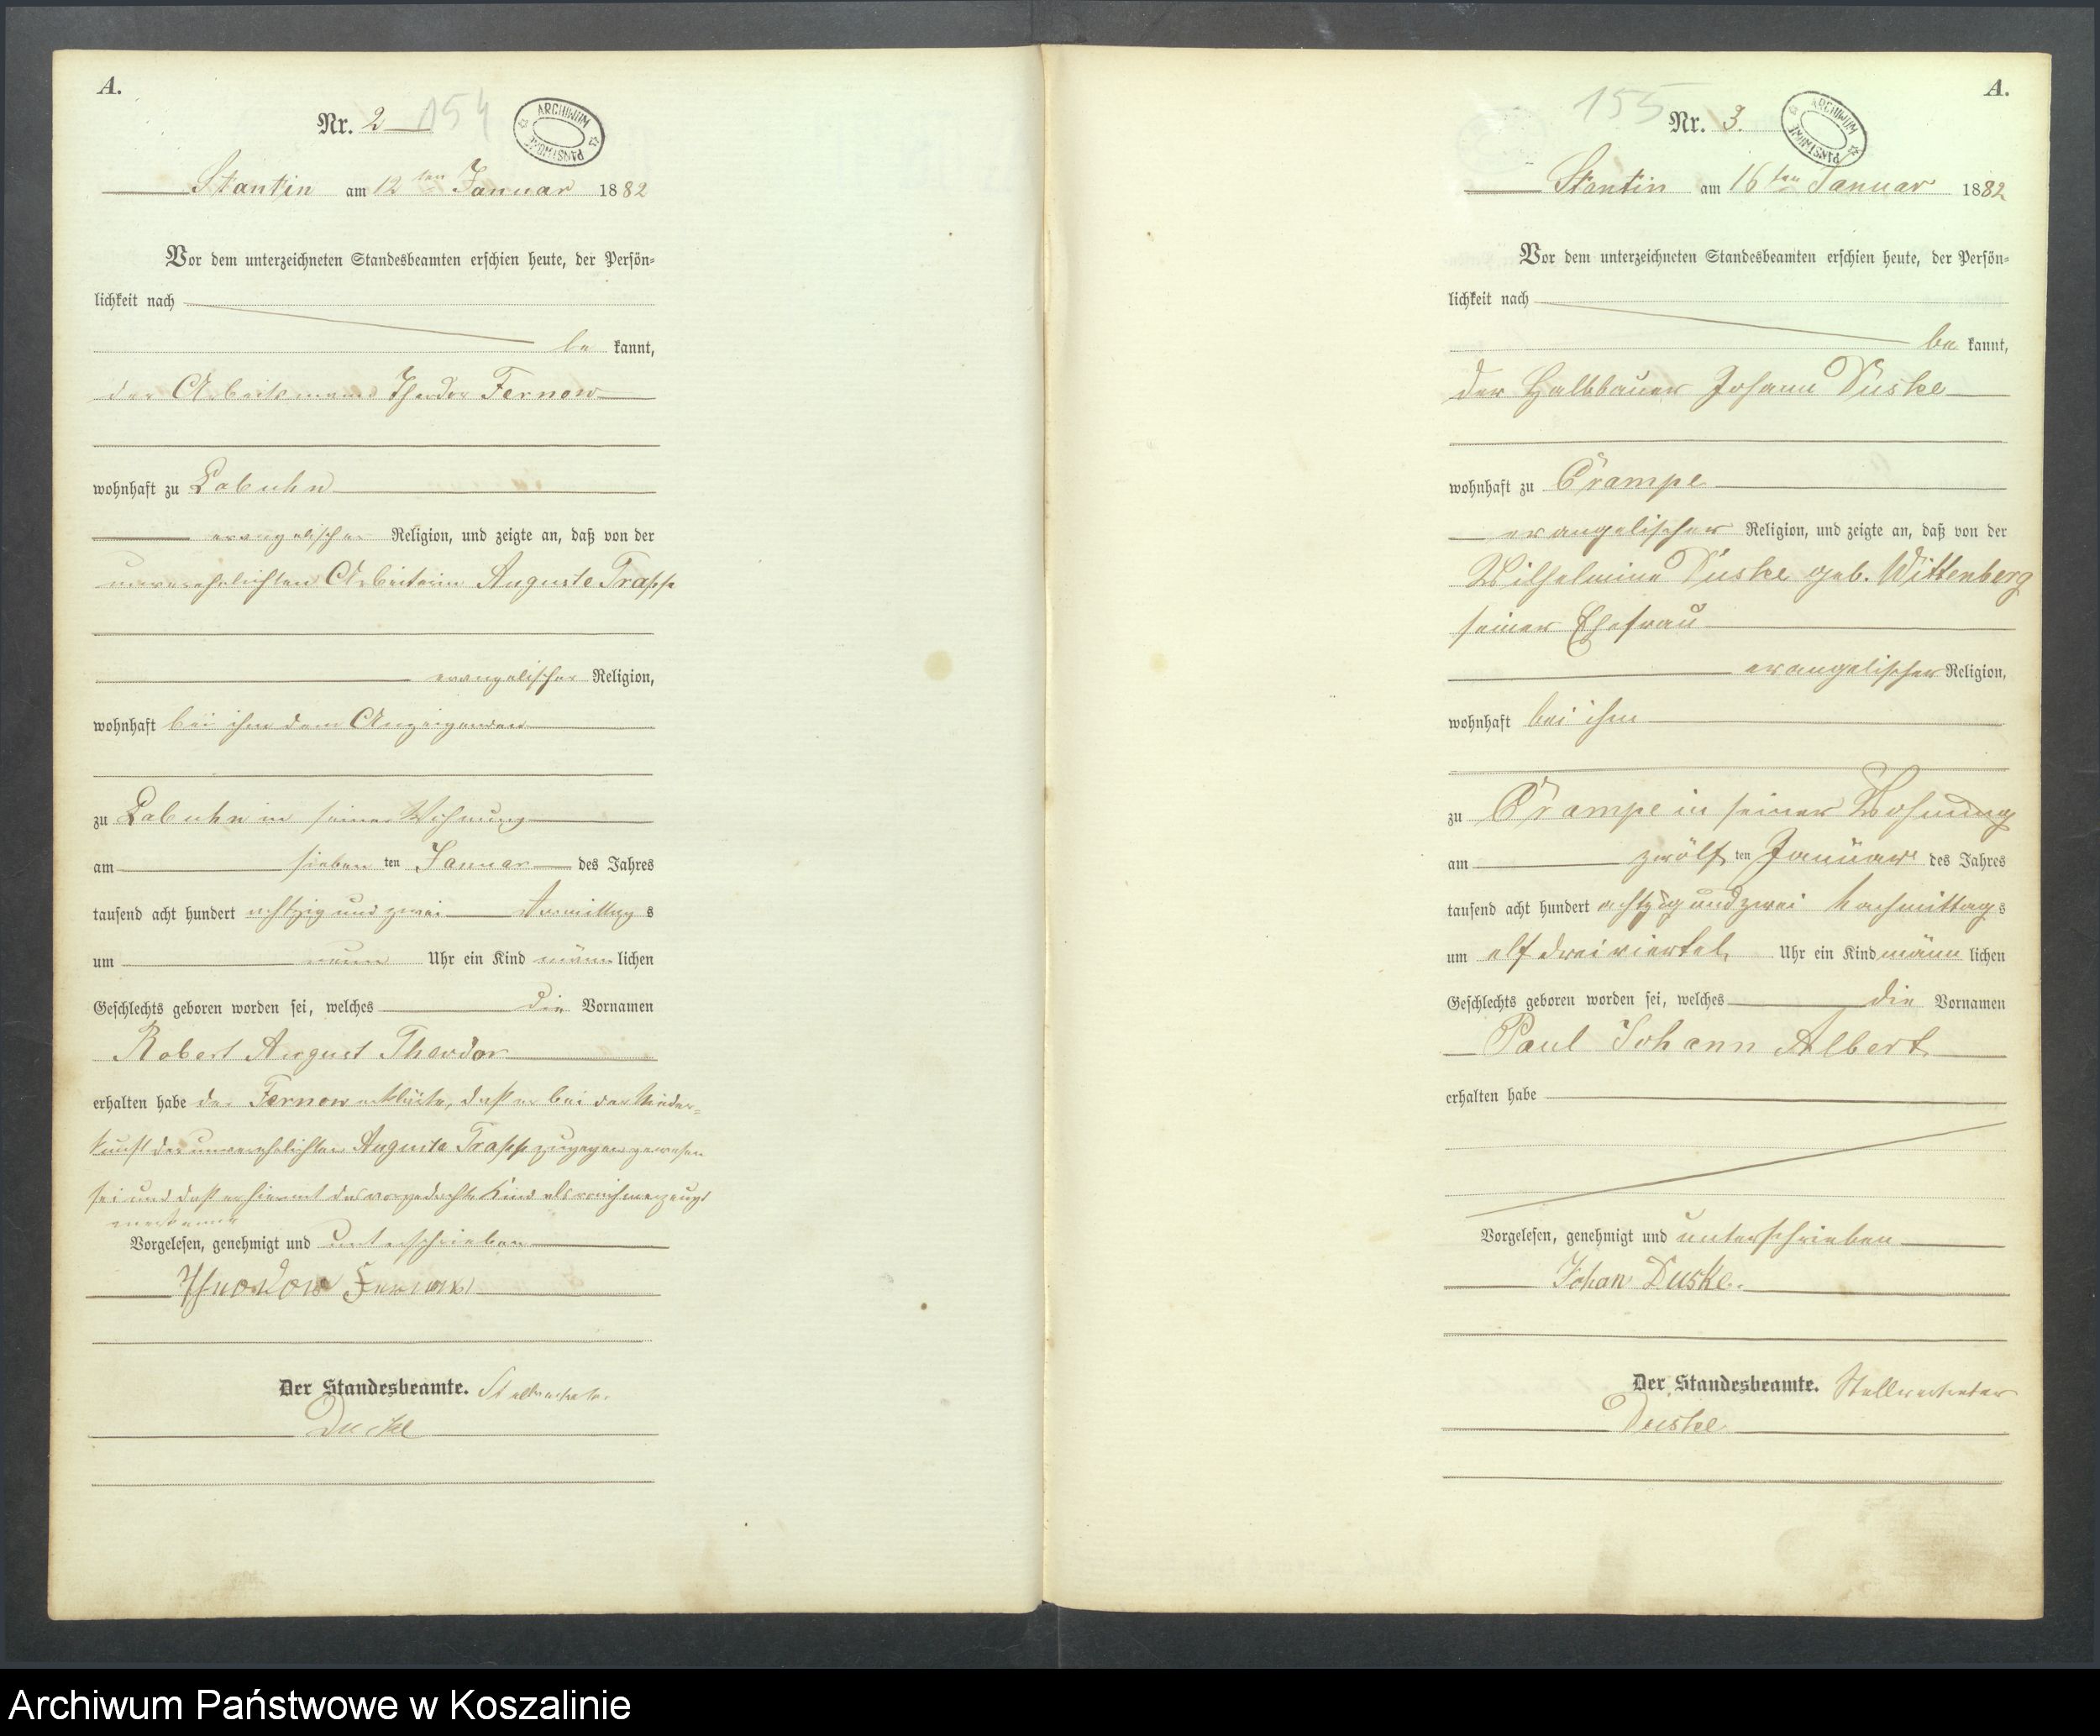 A.
Nr. 2 154
ARCHIWUM PAŃSTWOWE
Stantin am 12ten Januar 1882
Vor dem unterzeichneten Standesbeamten erschien heute, der Persön-
lichkeit nach
be kannt,
der Arbeitsmann Theodor Fernow
wohnhaft zu Labuhn
evangelischer Religion, und zeigte an, daß von der
unverehelichten Arbeiterin Auguste Trapp
evangelischer Religion,
wohnhaft bei ihm dem Anzeigenden
zu Labuhn in seiner Wohnung
am sieben ten Januar des Jahres
tausend acht hundert achtzig und zwei Vormittag s
um neun Uhr ein Kind männ lichen
Geschlechts geboren worden sei, welches die Vornamen
Robert August Theodor
erhalten habe der Fernow erklärte, daß er bei der Nieder-
kunft der unverehelichten Auguste Trapp zugegen gewesen
sei und daß er hiermit das vorgedachte Kind als von ihm erzeugt
anerkenne
Vorgelesen, genehmigt und unterschrieben
Theodor Fernow
Der Standesbeamte. Stellvertreter
Duske
A.
155 Nr. 3.
ARCHIWUM PAŃSTWOWE
Stantin am 16ten Januar 1882
Vor dem unterzeichneten Standesbeamten erschien heute, der Persön-
lichkeit nach
be kannt,
der Halbbauer Johann Duske
wohnhaft zu Crampe
evangelischer Religion, und zeigte an, daß von der
Wilhelmine Duske geb. Wittenberg
seiner Ehefrau
evangelischer Religion,
wohnhaft bei ihm
zu Crampe in seiner Wohnung
am zwölf ten Januar des Jahres
tausend acht hundert achtzig und zwei Nachmittag s
um elf dreiviertel Uhr ein Kind männ lichen
Geschlechts geboren worden sei, welches die Vornamen
Paul Johann Albert
erhalten habe
Vorgelesen, genehmigt und unterschrieben
Johan Duske.
Der Standesbeamte. Stellvertreter
Duske
Archiwum Państwowe w Koszalinie